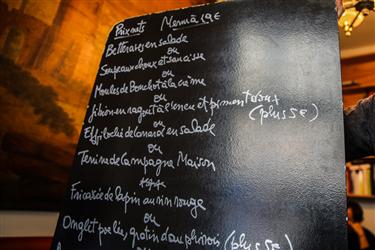 Prix nets Menu à 19€
Betteraves en salade
ou
Soupe aux choux et saucisse
ou
Moules de Bouchot à la crème
ou
en ragoût à l'encre et piment doux
(plus 5€)
ou
Effiloché de canard en salade
ou
Terrine de campagne Maison
****
Fricassée de lapin au vin rouge
ou
Onglet poêlé, gratin dauphinois (plus